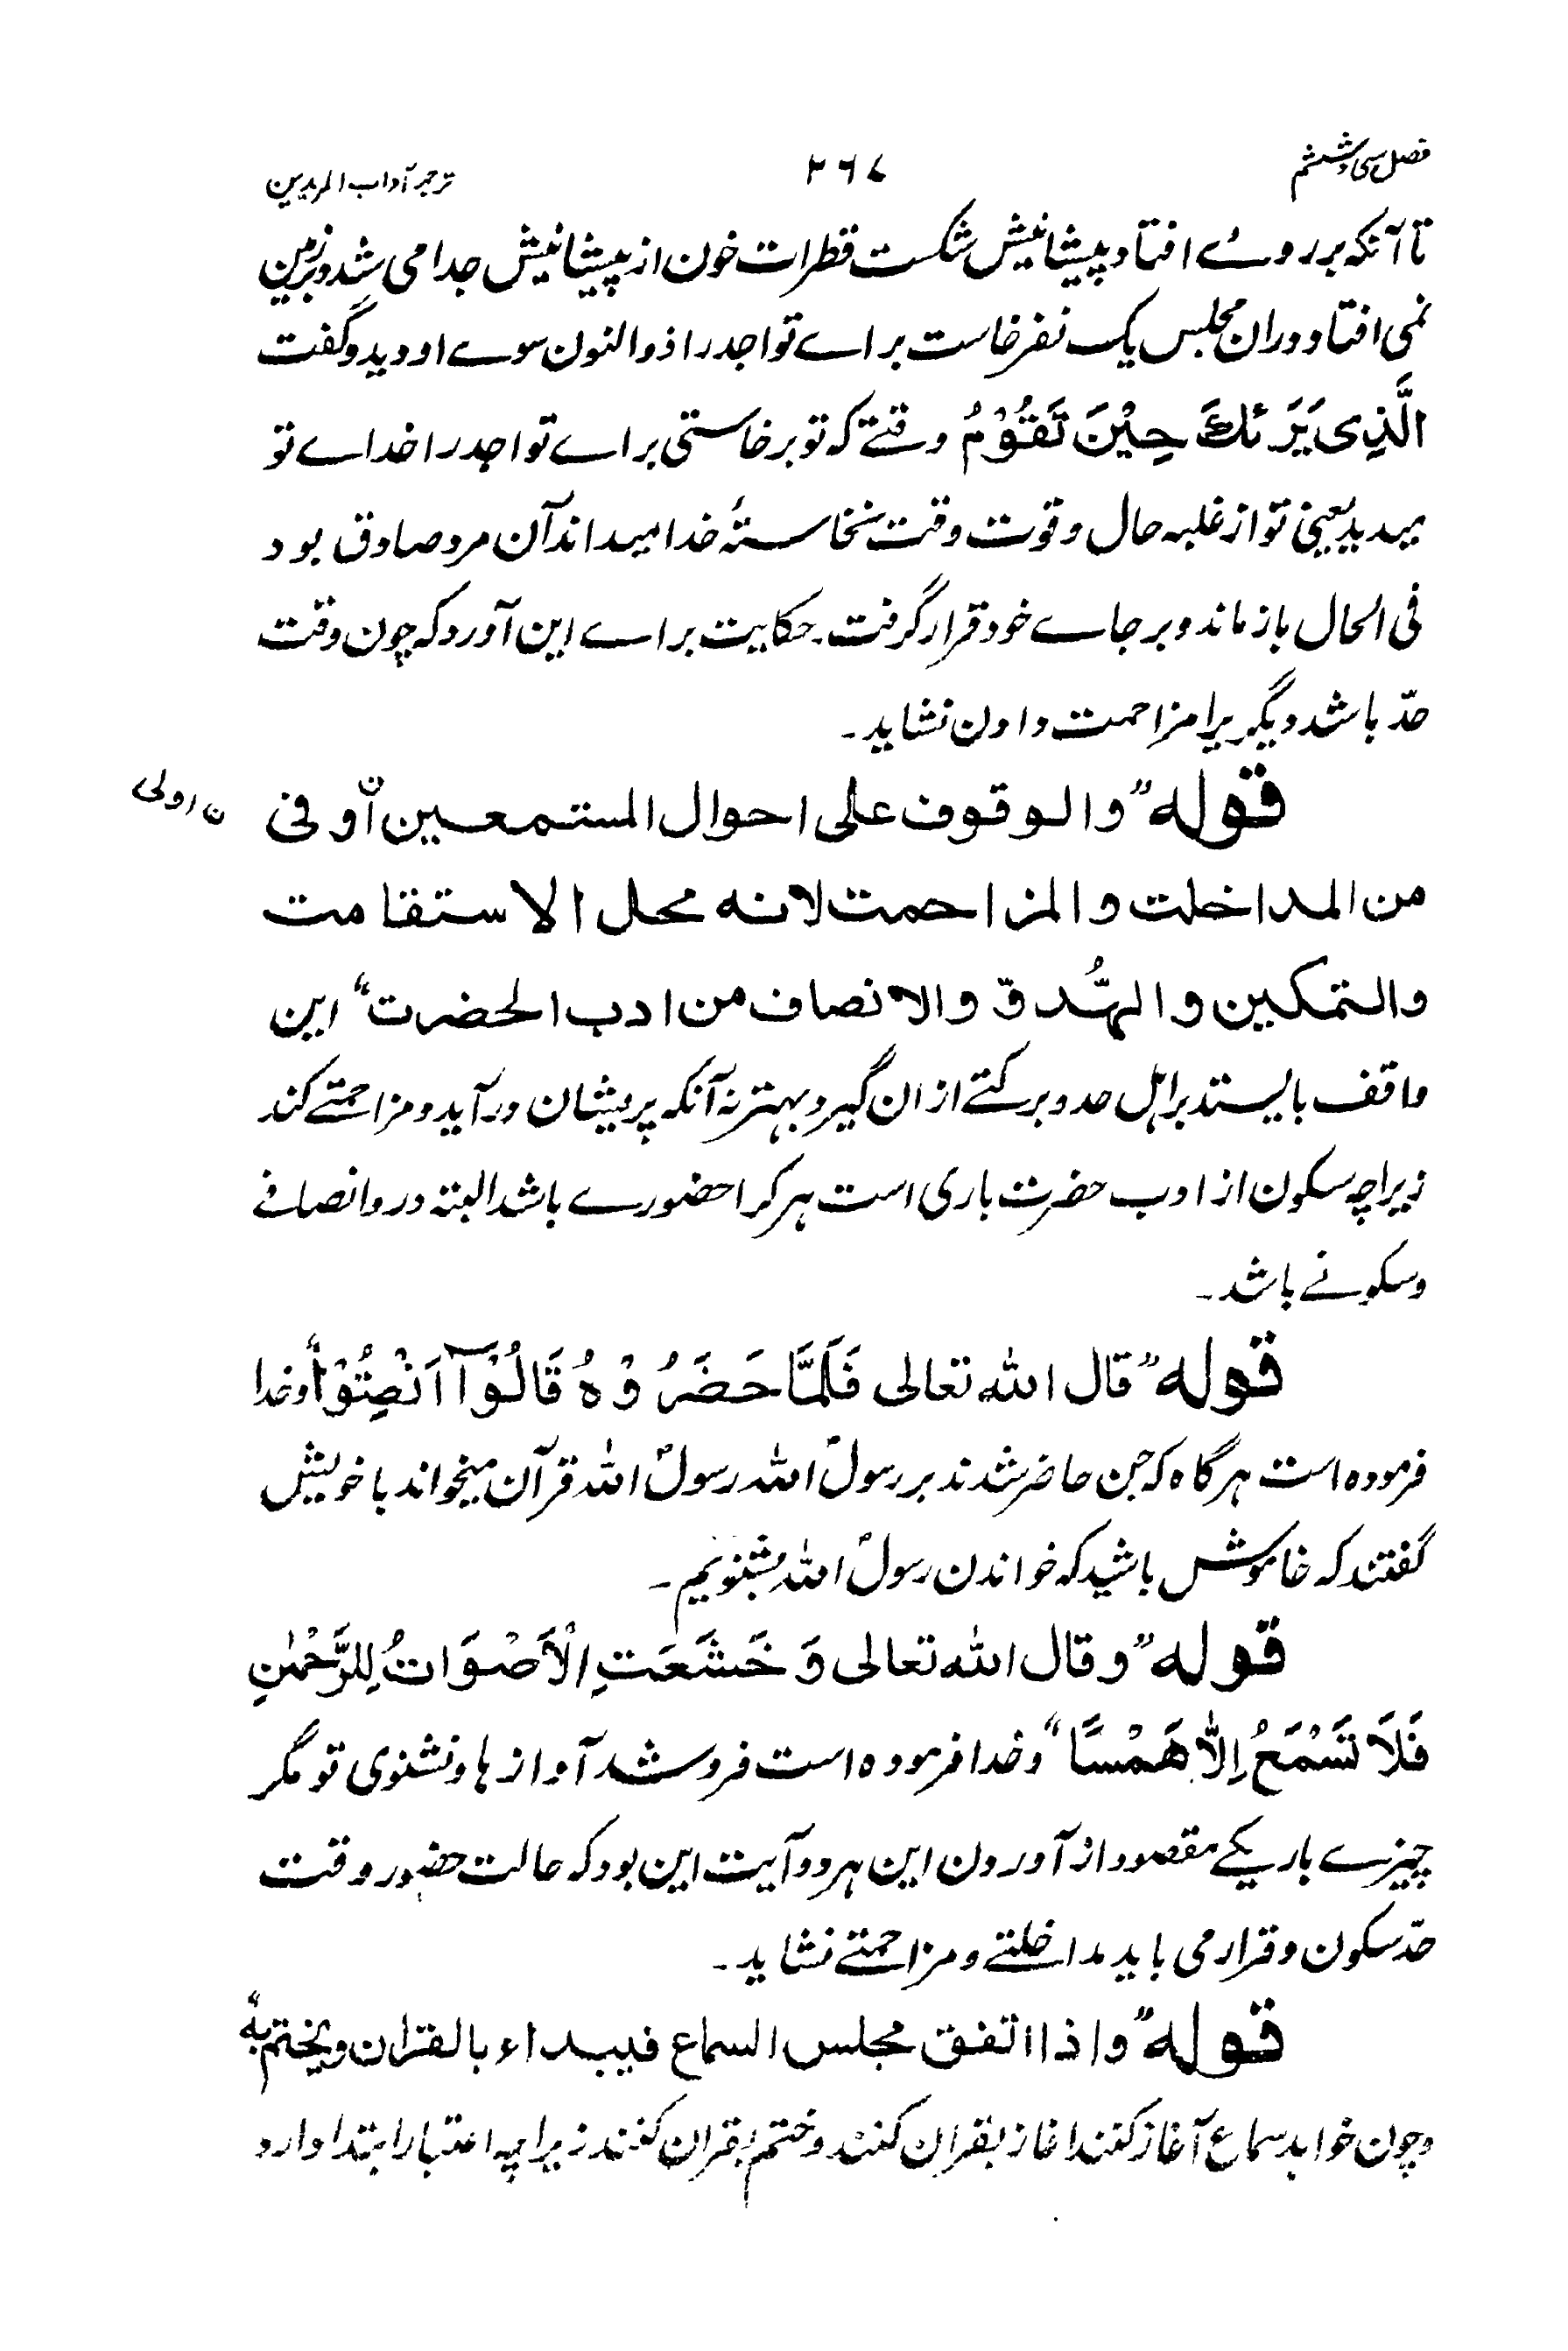 فصل سی و ششم
۲۶۷
ترجمہ آداب المریدین
تا آنکہ بر روے افتاد پیشانیش شکست قطرات خون از پیشانیش جدا می شد و بر زمین
نمی افتاد و دران مجلس یک نفر خاست براے تواجد را ذوالنون سوے او دید و گفت
الَّذِی یَرَىٰكَ حِیْنَ تَقُوْمُ وقتے کہ تو برخاستی براے تواجد را خداے تو
میدید یعنی تو از غلبہ حال و قوت وقت نخاستۂ خدا میداند آن مرد صادق بود
فی الحال باز ماند و بر جاے خود قرار گرفت۔ حکایت براے این آورد کہ چون وقت
حدّ باشد دیگریرا مزاحمت دادن نشاید۔
قولہ ”والوقوف علی احوال المستمعین اَو فی
ن اولی
من المداخلت والمزاحمت لانہ محل الاستقامت
والتمکین و الہُّدوّ والانصاف من ادب الحضرت“ این
واقف بایستد بر اہل حد و برکتے ازان گیرد بہتر نہ آنکہ پریشان در آید و مزاحمتے کند
زیراچہ سکون از ادب حضرت باری است ہر کرا حضورے باشد البتہ درو انصافے
و سکونے باشد۔
قولہ ”قال اللہ تعالی فَلَمَّا حَضَرُوْہُ قَالُوْۤا اَنْصِتُوْا“ و خدا
فرمودہ است ہرگاہ کہ جن حاضر شدند بر رسولؐ اللہ رسولؐ اللہ قرآن میخواند با خویش
گفتند کہ خاموش باشید کہ خواندن رسولؐ اللہ بشنویم۔
قولہ ”و قال اللہ تعالی وَ خَشَعَتِ الْاَصْوَاتُ لِلرَّحْمٰنِ
فَلَا تَسْمَعُ اِلَّا هَمْسًا“ و خدا فرمودہ است فرو شد آواز ہا و نشنوی تو مگر
چیزے باریکے مقصود از آوردن این ہر دو آیت این بود کہ حالت حضور وقت
حدّ سکون و قرار می باید مداخلتے و مزاحمتے نشاید۔
قولہ ”واذا اتفق مجلس السماع فیبداء بالقران و یختم بہ“
و چون خواہد سماع آغاز کنند اغاز بقران کنند و ختم بقران کنند زیراچہ اعتبار ابتدا دارد